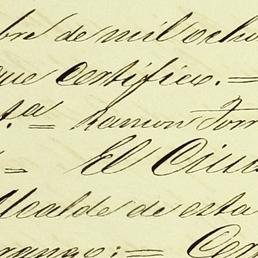 bre de mil ocho
que certifico. =
ta = Ramon Torr
= El Ciud
Alcalde de esta
rango: = Cer